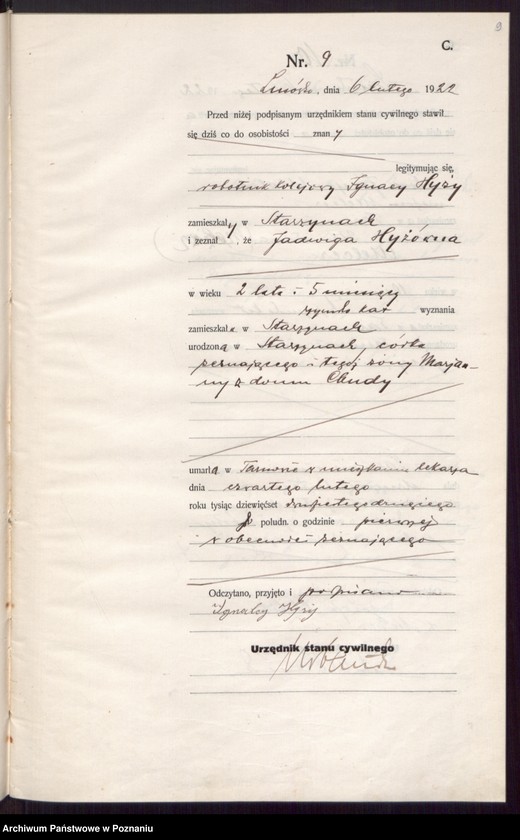 9
C.
Nr. 9
dnia 6 lutego 1922
Przed niżej podpisanym urzędnikiem stanu cywilnego stawił
się dziś co do osobistości znany
legitymując się,
robotnik kolejowy Ignacy Hyży
zamieszkały w Starzynach
i zeznał , że Jadwiga Hyżówna
w wieku 2 lata i 5 miesięcy
rzymsko kat wyznania
zamieszkała w Starzynach
urodzona w Starzynach, córka
zeznającego i tegoż żony Marjan-
ny z domu Chudy
umarła w Tarnowie w mieszkaniu lekarza
dnia czwartego lutego
roku tysiąc dziewięćset dwudziestegodrugiego
po połudn. o godzinie pierwszej
w obecności zeznającego
Odczytano, przyjęto i podpisano
Ignacy Hyży
Urzędnik stanu cywilnego
Archiwum Państwowe w Poznaniu